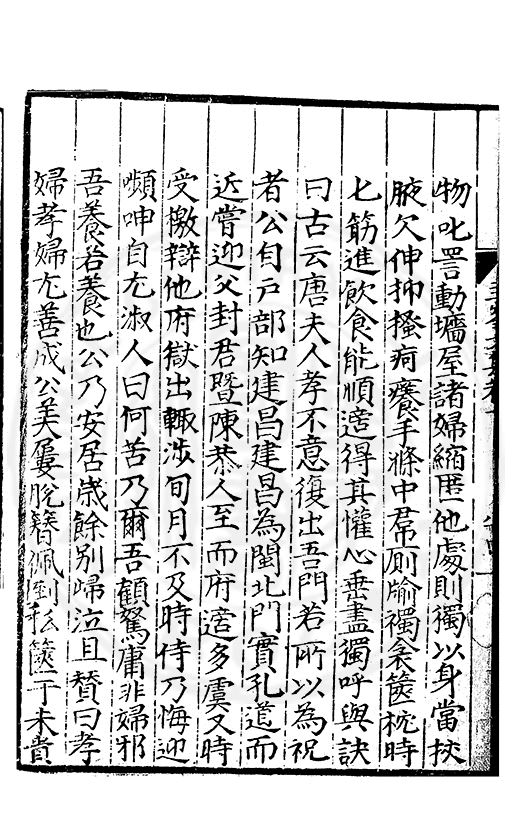 物叱詈動墉屋諸婦縮匿他處則獨以身當挾
腋欠伸抑搔疴癢手滌中帬廁牏襡衾篋枕時
匕筯進飲食能順適得其懽心垂盡獨呼與訣
曰古云唐夫人孝不意復出吾門若所以為祝
者公自戶部知建昌建昌為閩北門實孔道而
近嘗迎父封君暨陳恭人至而府適多虞又時
受檄辯他府獄出輙涉旬月不及時侍乃悔迎
嚬呻自尤淑人曰何苦乃爾吾顧駑庸非婦邪
吾養若養也公乃安居歲餘別歸泣且贊曰孝
婦孝婦尤善成公美屢脫簪佩劑私篋于未貴